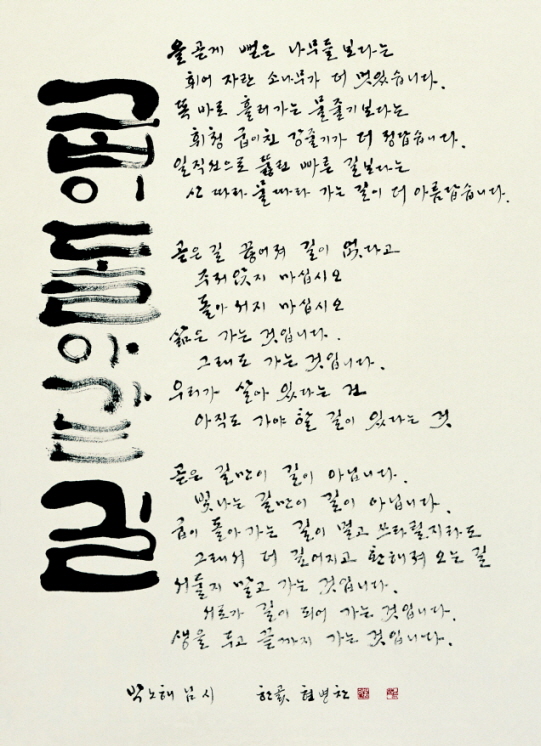 굽이 돌아가는 길
올 곧게 뻗은 나무들보다는
휘어 자란 소나무가 더 멋있습니다.
똑 바로 흘러가는 물줄기보다는
휘청 굽이친 강줄기가 더 정답습니다.
일직선으로 뚫린 빠른 길보다는
산 따라 물 따라 가는 길이 더 아름답습니다.
곧은 길 끊어져 길이 없다고
주저앉지 마십시오
돌아서지 마십시오
삶은 가는 것입니다.
그래도 가는 것입니다.
우리가 살아 있다는 건
아직도 가야 할 길이 있다는 것
곧은 길만이 길이 아닙니다.
빛나는 길만이 길이 아닙니다.
굽이 돌아가는 길이 멀고 쓰라릴지라도
그래서 더 깊어지고 환해져 오는 길
서둘지 말고 가는 것입니다.
서로가 길이 되어 가는 것입니다.
생을 두고 끝까지 가는 것입니다.
박노해 님 시 한곬 현병찬